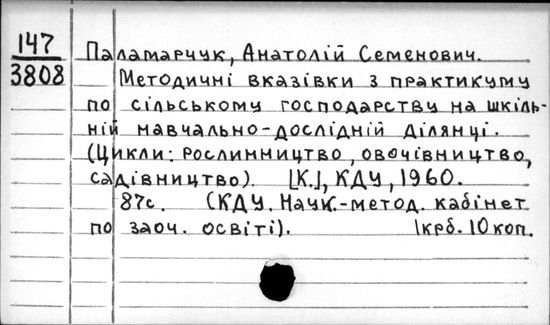 147
3808
Паламарчук, Анатолій Семенович.
Методичні вказівки з практикуму
по сільському господарству на шкіль-
ній навчально-дослідній ділянці.
(Цикли: рослинництво, овочівництво,
садівництво). [К.], КДУ, 1960.
87с. (КДУ. Наук.-метод. кабінет
по заоч. освіті). 1крб. 10коп.